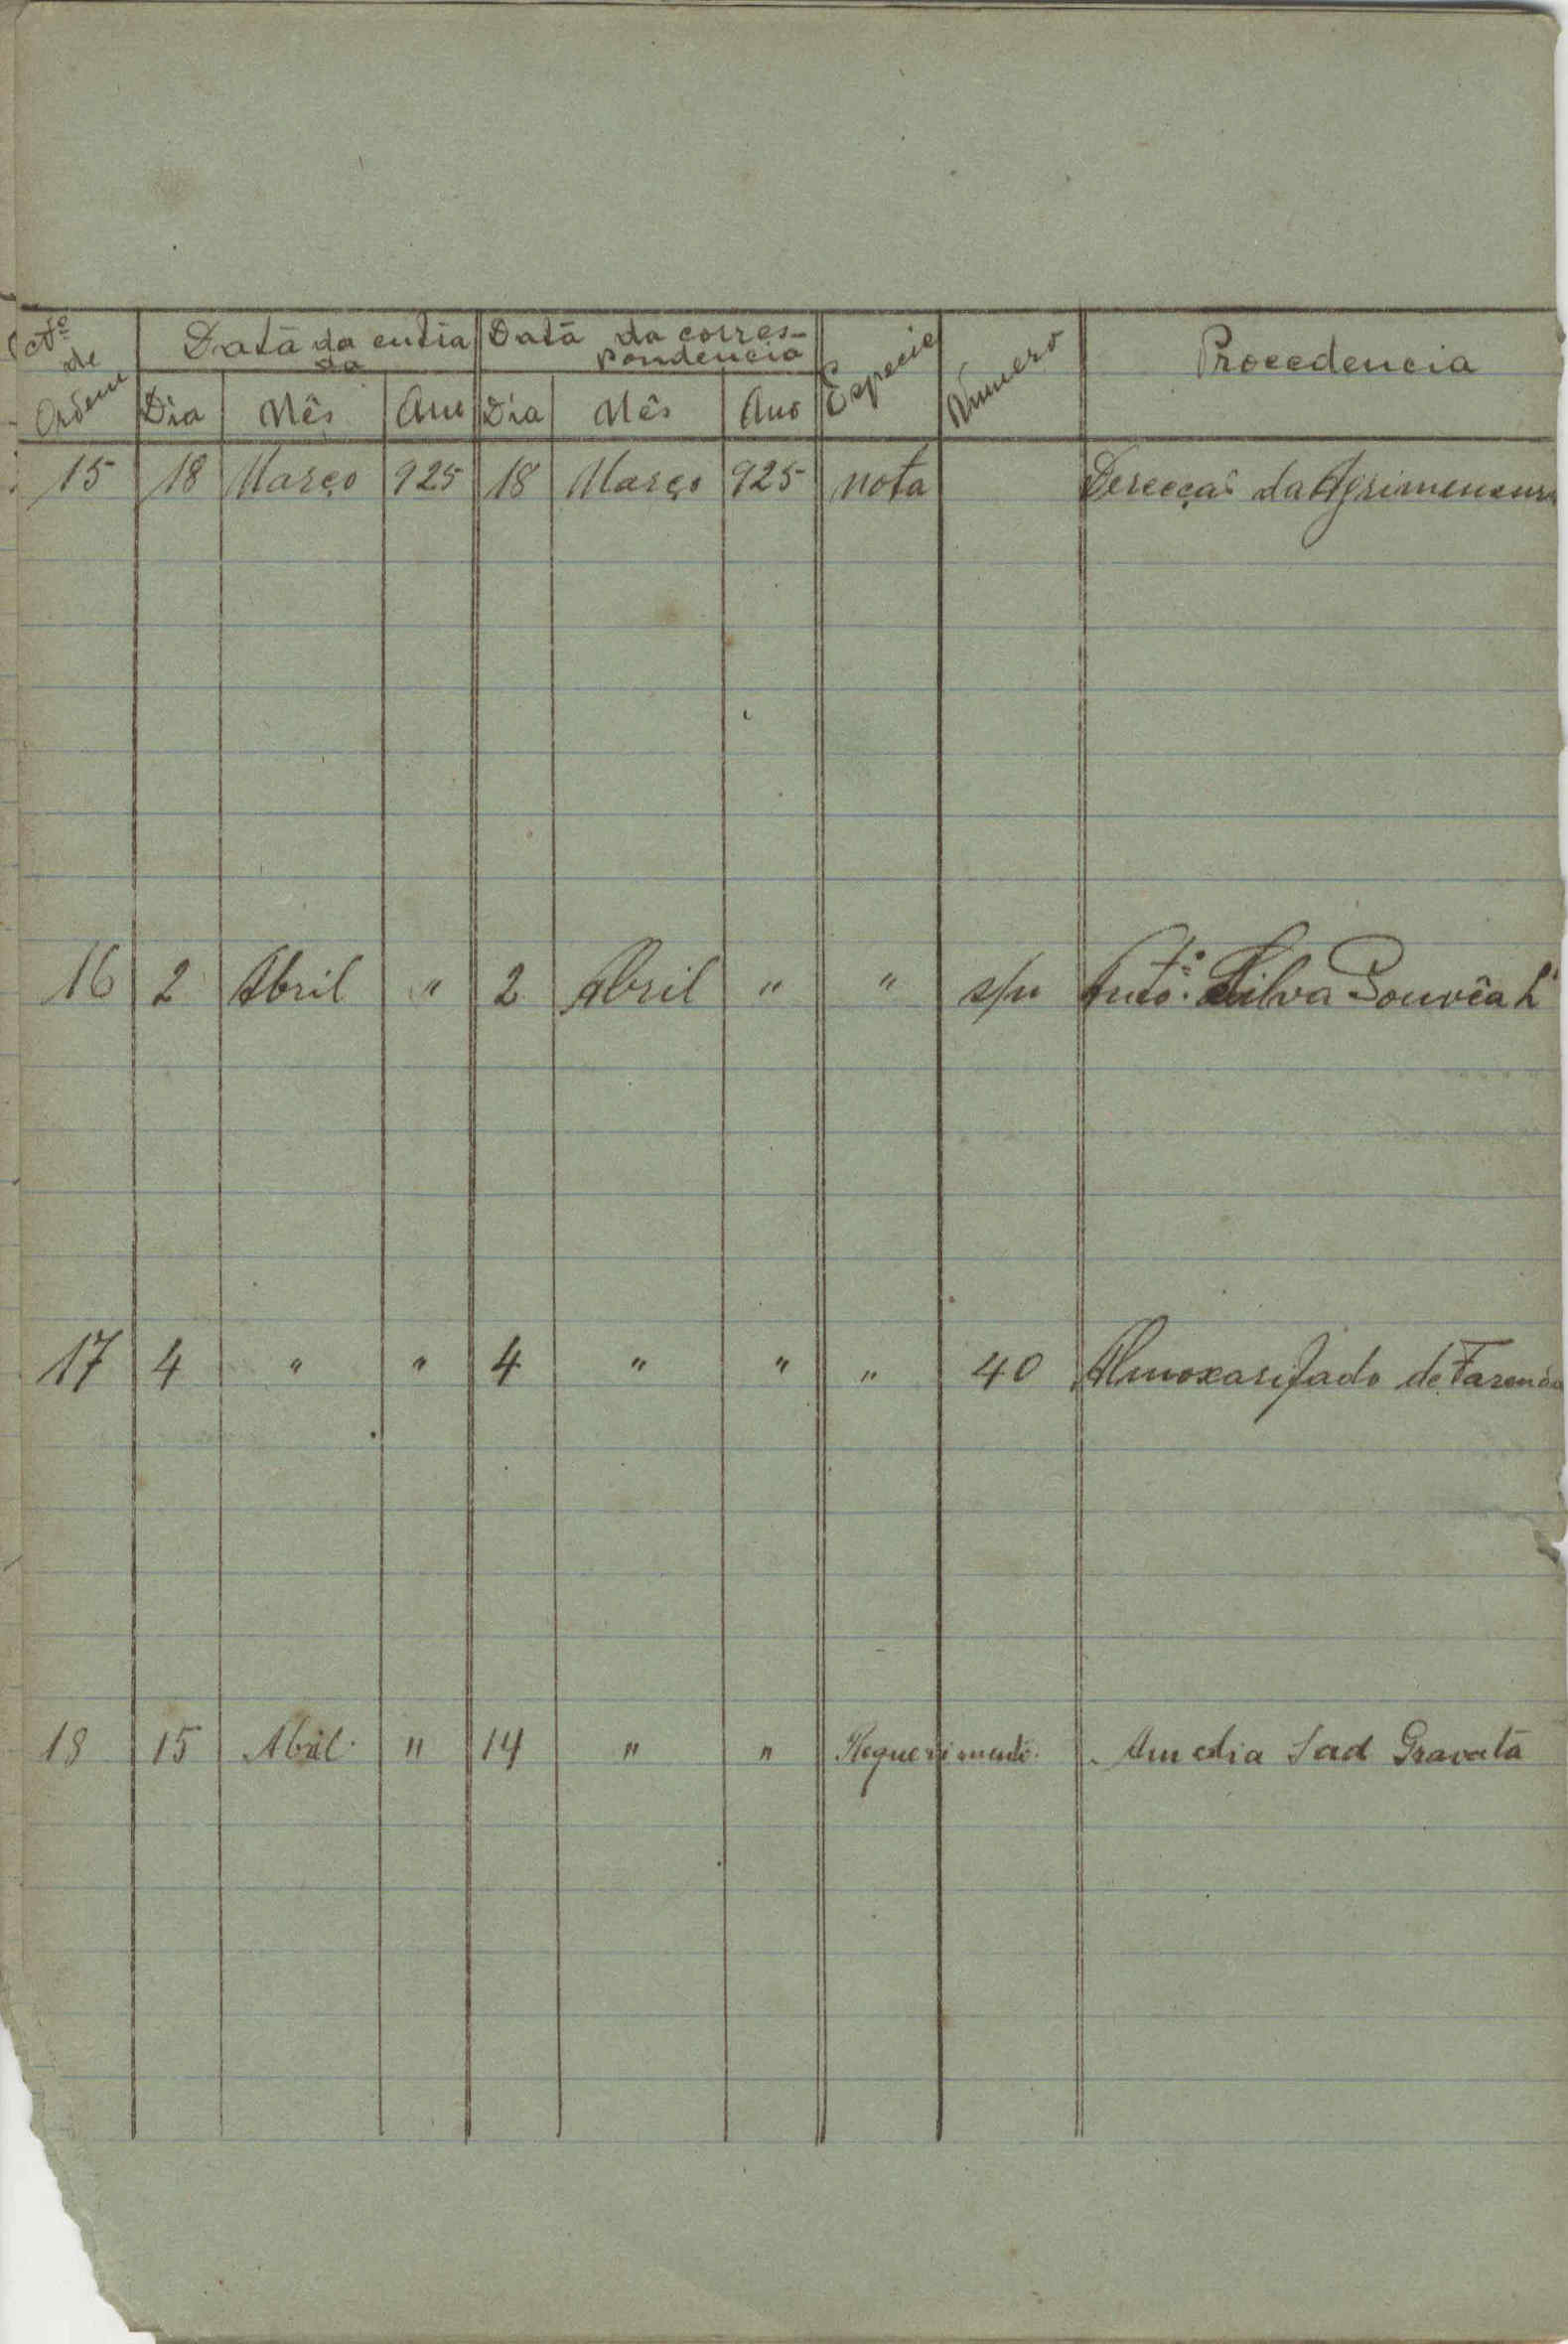 Nº de Ordem Data da entrada Data da correspondencia Especie Número Procedencia
Dia Mês Ano Dia Mês Ano
15 18 Março 925 18 Março 925 nota Derecção da Agrimensura
16 2 Abril " 2 Abril " " s/n Antº. Silva Gouvêa Lª
17 4 " " 4 " " " 40 Almoxarifado de Fazenda
18 15 Abril. " 14 " " Requerimento. Amelia Gravata